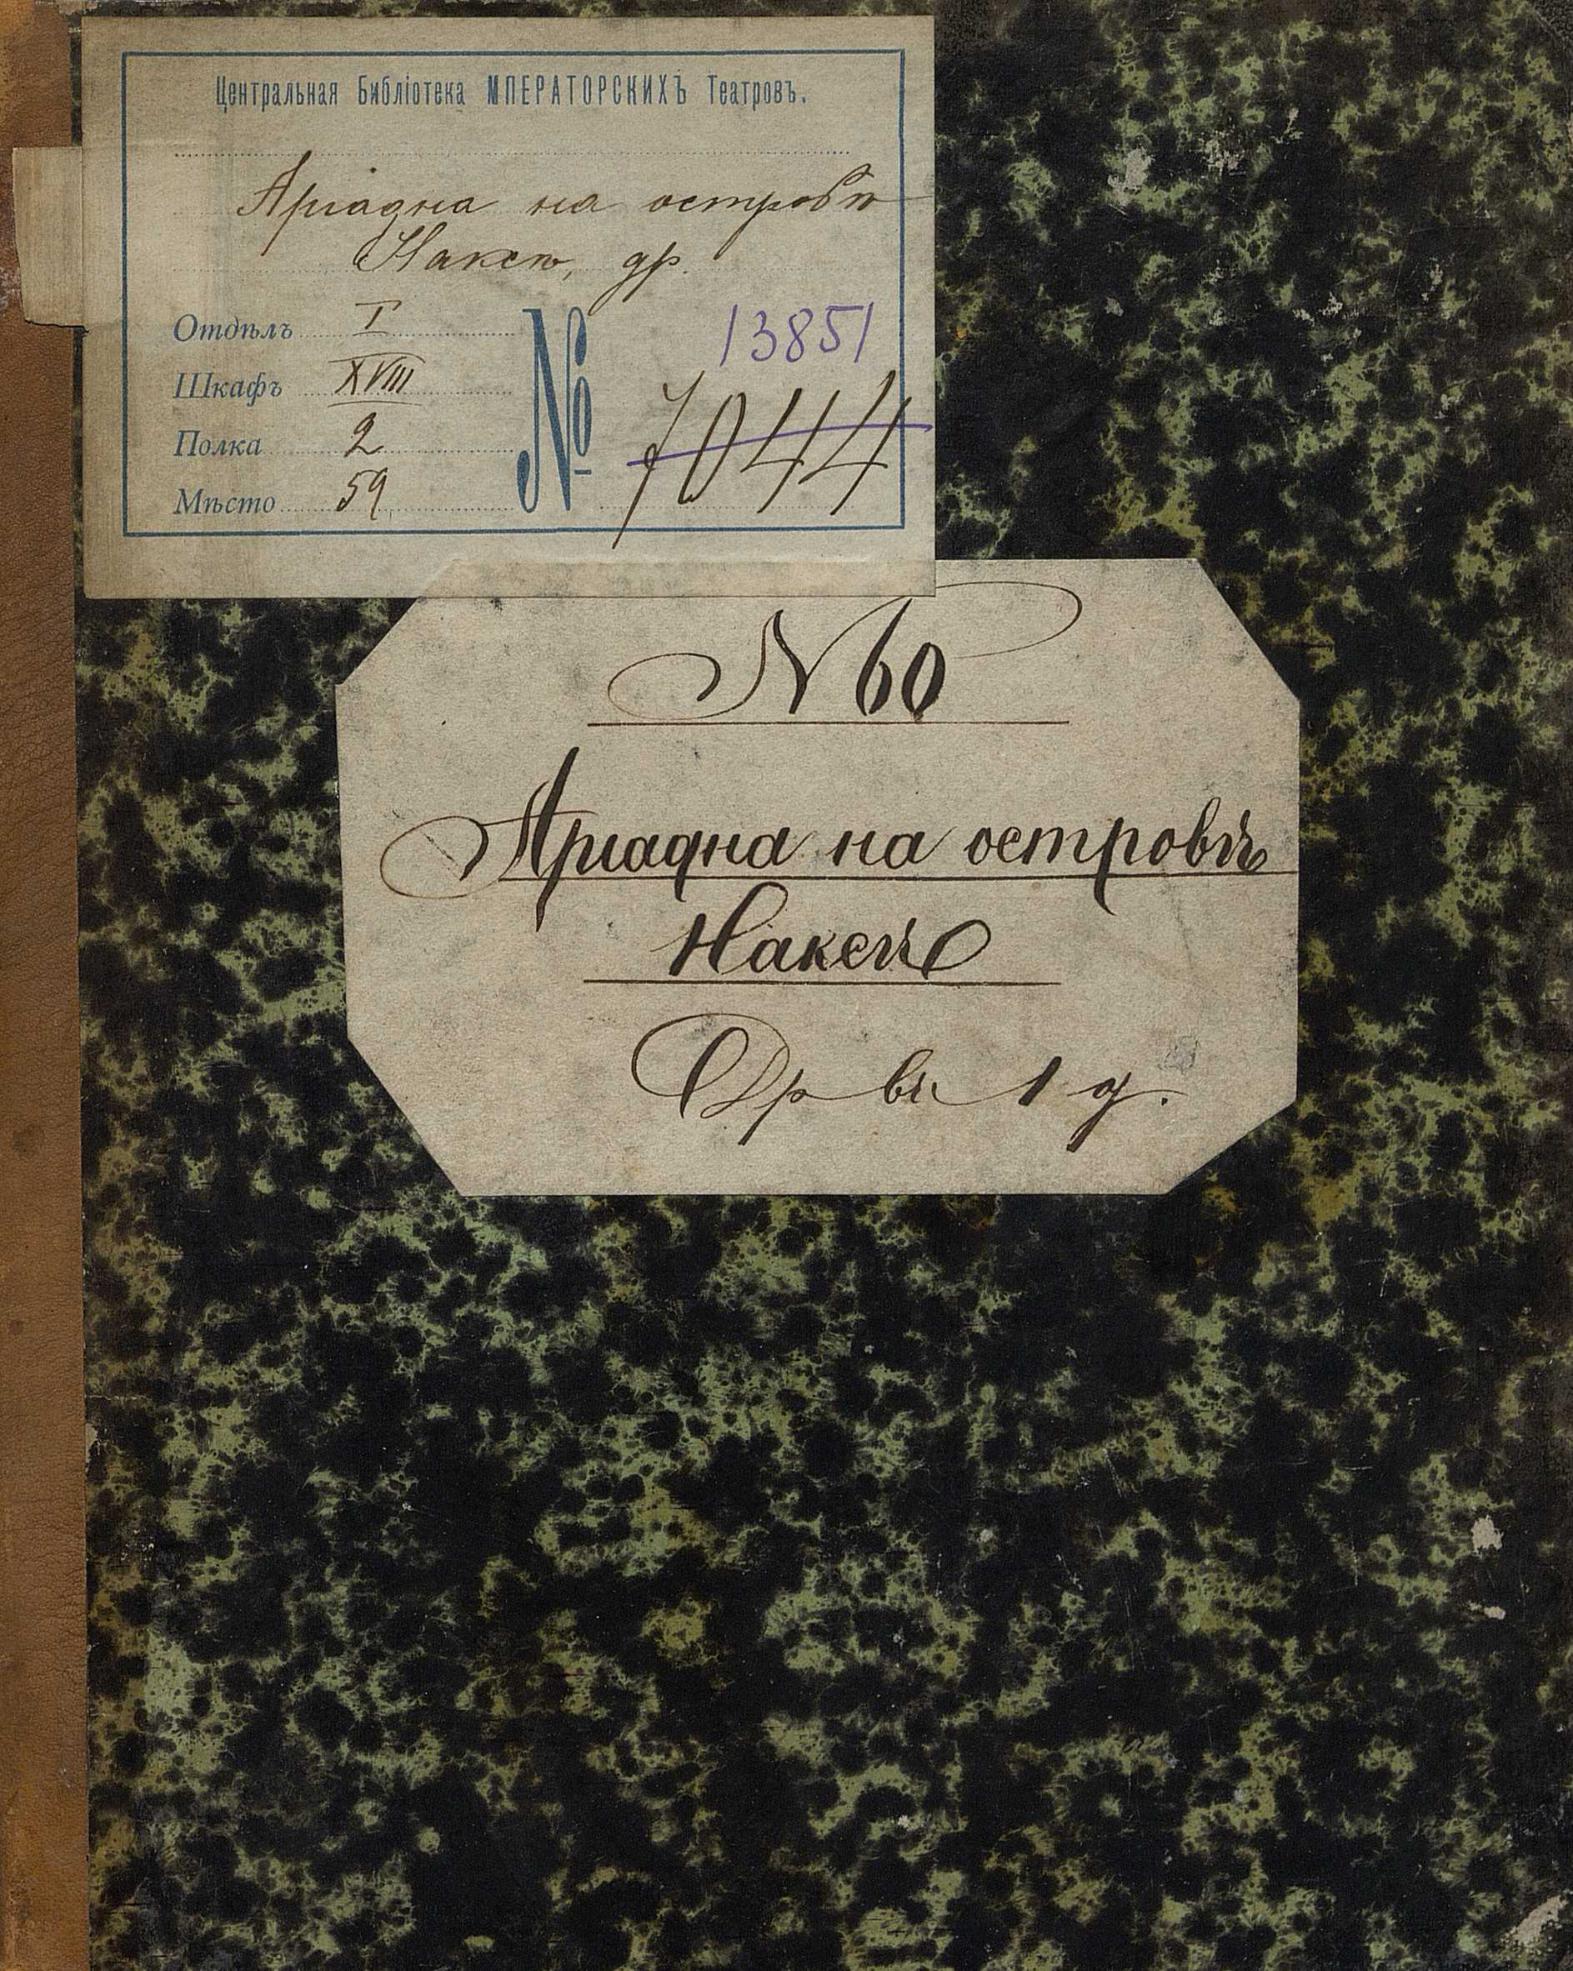 Центральная Библіотека МПЕРАТОРСКИХЪ Театровъ.
Аріадна на островѣ
Наксѣ, др.
Отдѣлъ I
Шкафъ XVIII
Полка 2
Мѣсто 59
№ 13851
7044
N 60
Аріадна на островѣ
Наксѣ
Др въ 1 д.